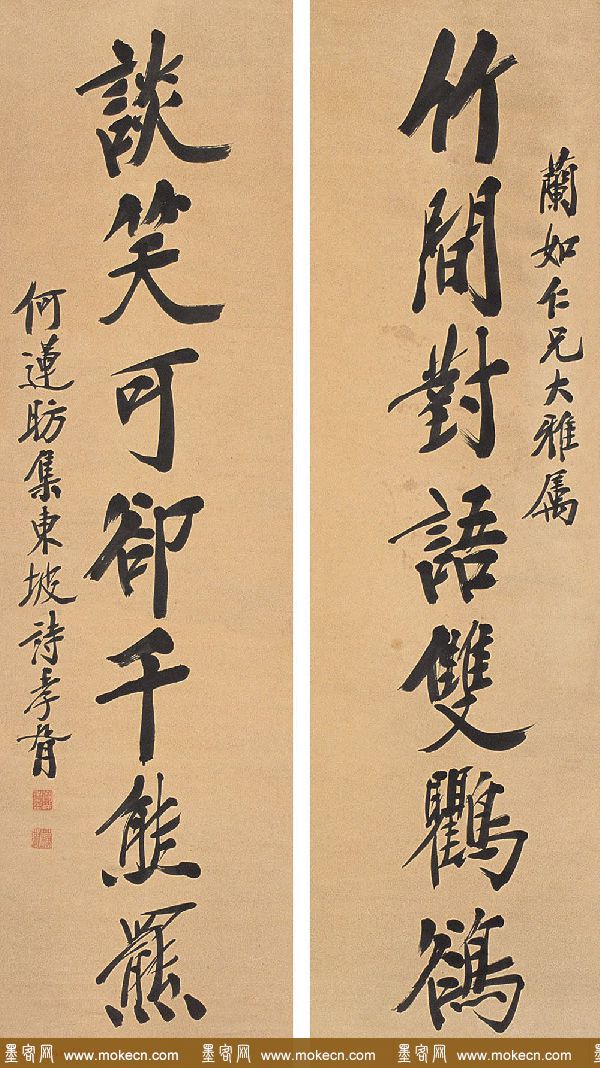 蘭如仁兄大雅属
竹間對語雙鸜鵒
談笑可卻千熊羆
何蓮昉集東坡詩孝胥
墨客网 www.mokecn.com 墨客网 www.mokecn.com 墨客网 www.mokecn.com